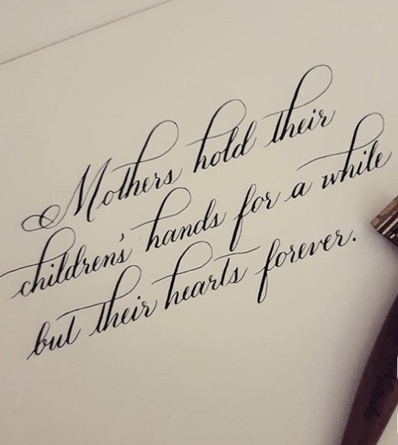 Mothers hold their
children's hands for a while
but their hearts forever.